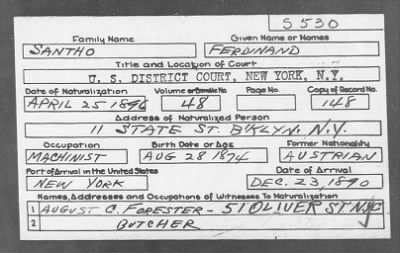 S 530
Family Name Given Name or Names
SANTHO FERDINAND
Title and Location of Court
U. S. DISTRICT COURT, NEW YORK, N.Y.
Date of Naturalization Volume or Bundle No. Page No. Copy of Record No.
APRIL 25 1896 48 148
Address of Naturalized Person
11 STATE ST. BKLYN. N.Y.
Occupation Birth Date or Age Former Nationality
MACHINIST AUG 28 1874 AUSTRIAN
Port of Arrival in the United States Date of Arrival
NEW YORK DEC. 23, 1890
Names, Addresses and Occupations of Witnesses To Naturalization
1 AUGUST C. FORESTER - 51 OLIVER ST NYC
2 BUTCHER